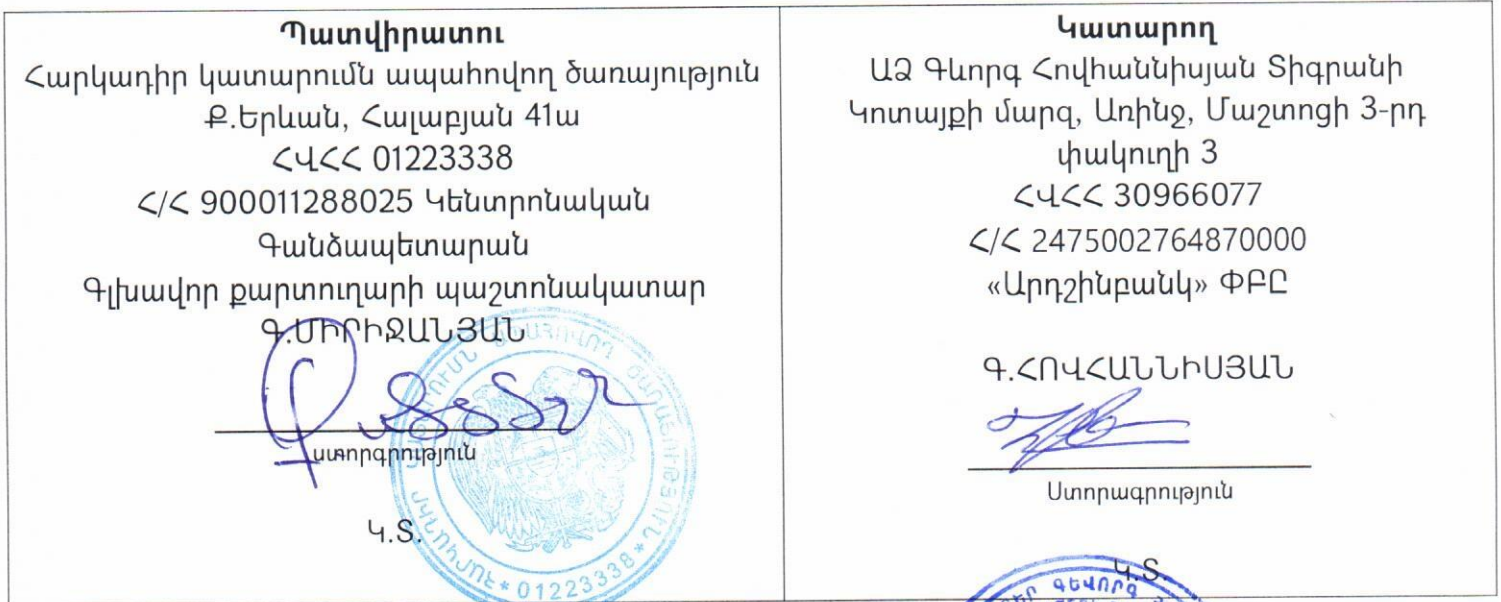 Պատվիրատու
Հարկադիր կատարումն ապահովող ծառայություն
Ք.Երևան, Հալաբյան 41ա
ՀՎՀՀ 01223338
Հ/Հ 900011288025 Կենտրոնական
Գանձապետարան
Գլխավոր քարտուղարի պաշտոնակատար
Գ.ՄԻՐԻՋԱՆՅԱՆ
ստորգրություն
Կ.Տ.
ԿԱՏԱՐՈՒՄՆ ԱՊԱՀՈՎՈՂ ԾԱՌԱՅՈՒԹՅՈՒՆ
* 01223338 *
Կատարող
ԱՁ Գևորգ Հովհաննիսյան Տիգրանի
Կոտայքի մարզ, Առինջ, Մաշտոցի 3-րդ
փակուղի 3
ՀՎՀՀ 30966077
Հ/Հ 2475002764870000
«Արդշինբանկ» ՓԲԸ
Գ.ՀՈՎՀԱՆՆԻՍՅԱՆ
Ստորագրություն
Կ.Տ.
ԳԵՎՈՐԳ